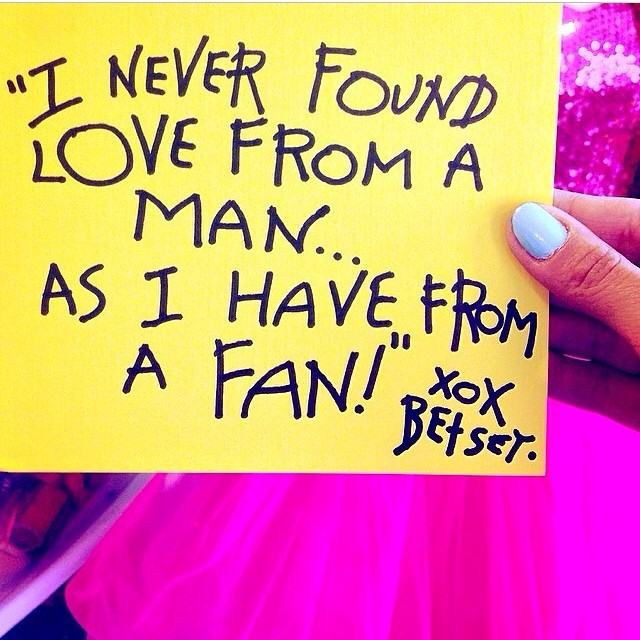 "I NEVER FOUND
LOVE FROM A
MAN...
AS I HAVE FROM
A FAN!"
XOX
BEtSEY.